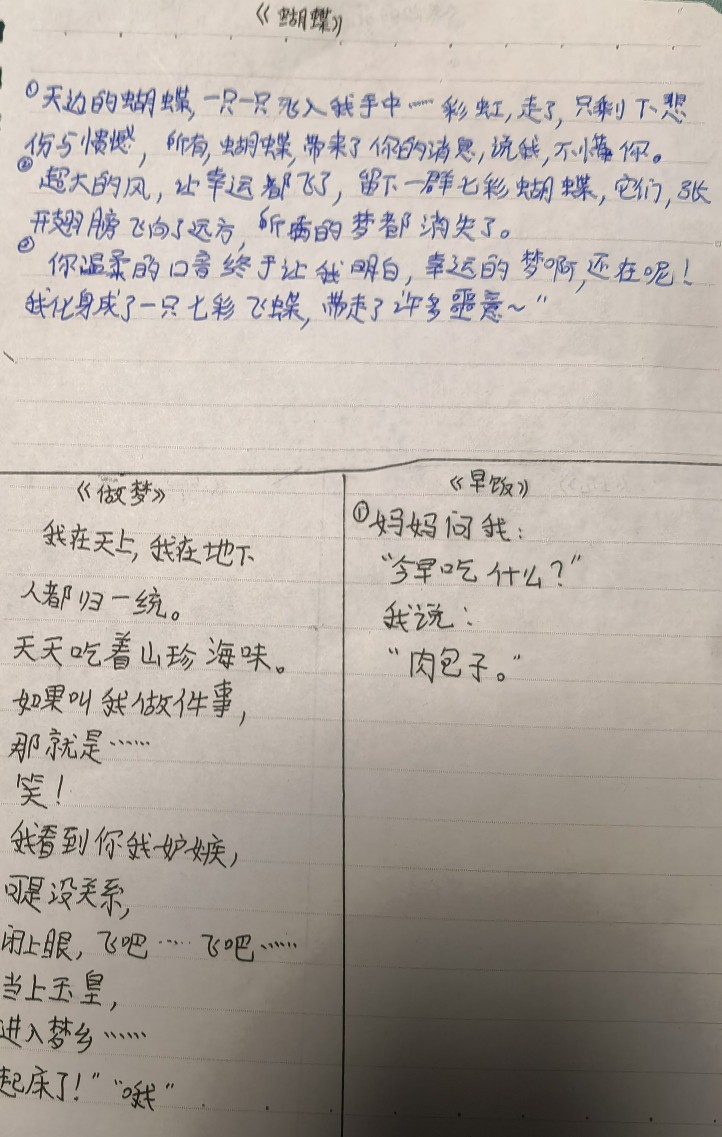 《蝴蝶》
①天边的蝴蝶,一只一只飞入我手中一彩虹,走了,只剩下悲
伤与愤憾,所有,蝴蝶,带来了你的消息,说我,不懂你。
②超大的风,让幸运都飞了,留下一群七彩蝴蝶,它们,张
开翅膀飞向了远方,所有的梦都消失了。
②你温柔的口音终于让我明白,幸运的梦啊,还在呢!
我化身成了一只七彩飞蝶,带走了许多噩意~"
《做梦》
我在天上,我在地下
人都归一统。
天天吃着山珍海味。
如果叫我做件事,
那就是……
笑!
我看到你我妒嫉,
可是没关系,
闭上眼,飞吧……飞吧……
当上玉皇,
进入梦乡……
起床了!""哦"
《早饭》
①妈妈问我:
"今早吃什么?"
我说:
"肉包子。"